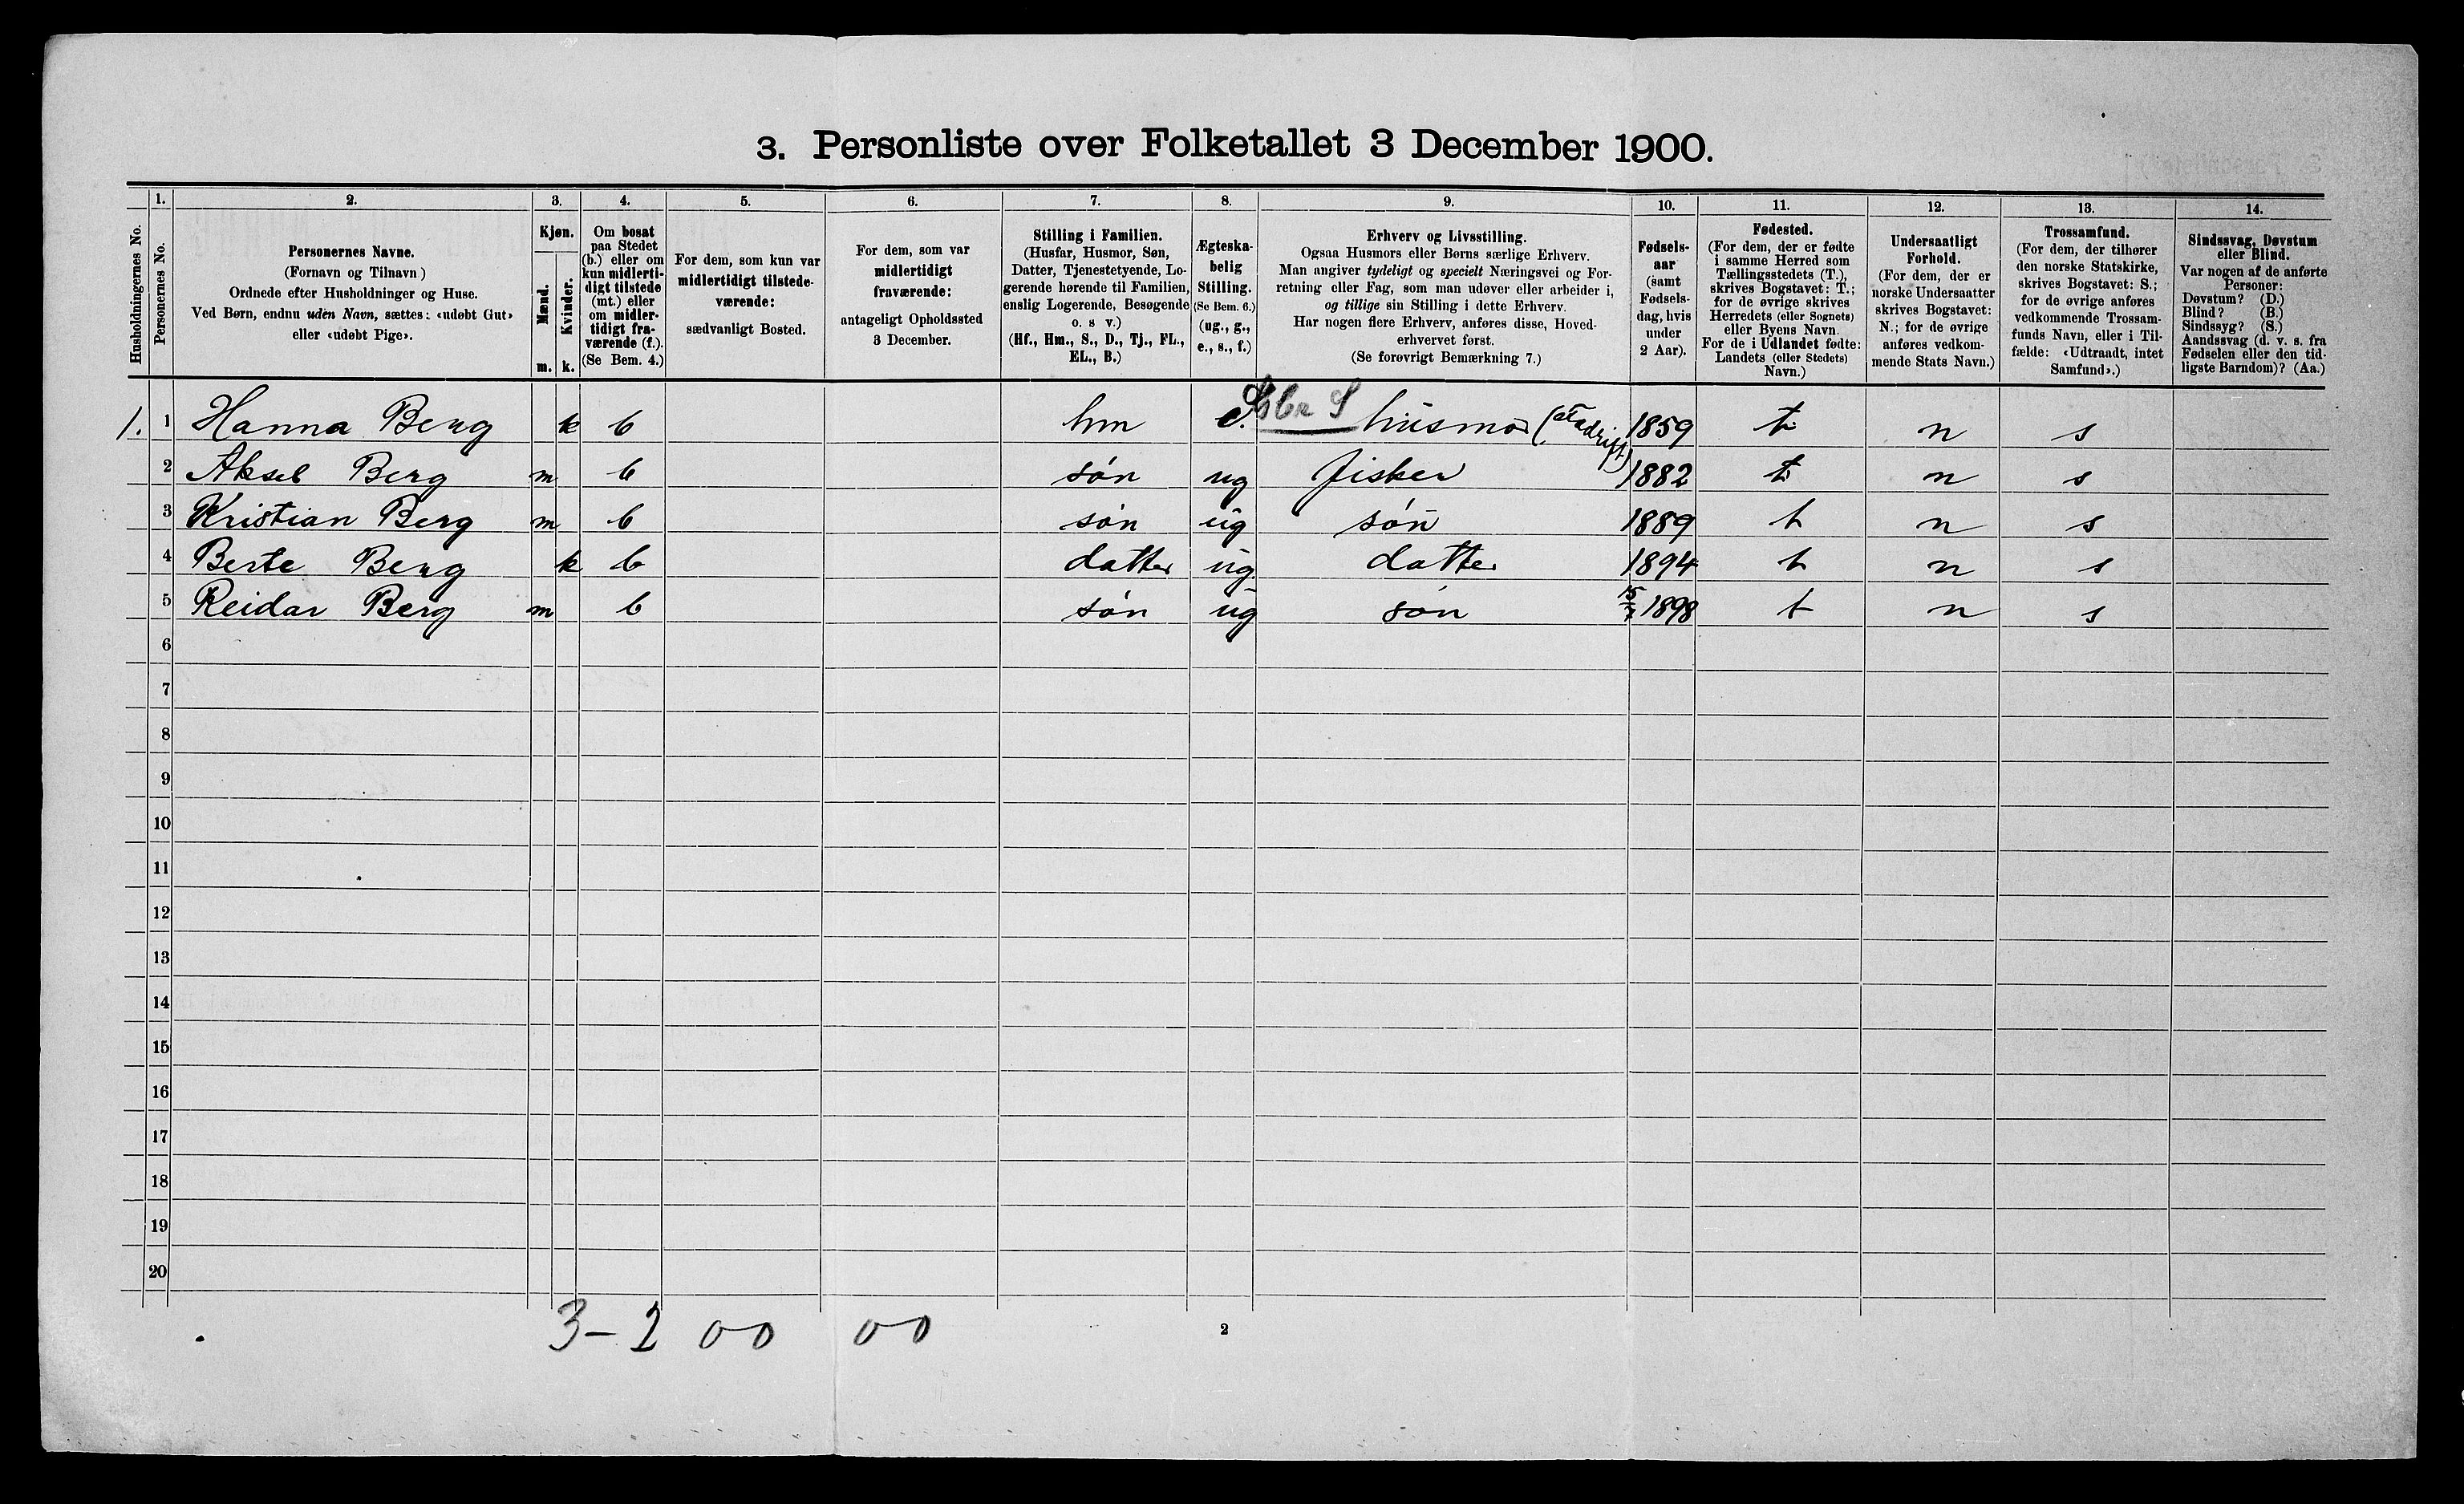 3. Personliste over Folketallet 3 December 1900.
Husholdningernes No.
1.
Personernes No.
2.
Personernes Navne.
(Fornavn og Tilnavn)
Ordnede efter Husholdninger og Huse.
Ved Børn, endnu uden Navn, sættes: «udøbt Gut»
eller «udøbt Pige».
3.
Kjøn.
Mænd.
Kvinder.
m. k.
4.
Om bosat
paa Stedet
(b.) eller om
kun midlerti-
digt tilstede
(mt.) eller
om midler-
tidigt fra-
værende (f.).
(Se Bem. 4.)
5.
For dem, som kun var
midlertidigt tilstede-
værende:
sædvanligt Bosted.
6.
For dem, som var
midlertidigt
fraværende:
antageligt Opholdssted
3 December.
7.
Stilling i Familien.
(Husfar, Husmor, Søn,
Datter, Tjenestetyende, Lo-
gerende hørende til Familien,
enslig Logerende, Besøgende
o. s v.)
(Hf., Hm., S., D., Tj., FL.,
EL., B.)
8.
Ægteska-
belig
Stilling.
(Se Bem. 6.)
(ug., g.,
e., s., f.)
9.
Erhverv og Livsstilling.
Ogsaa Husmors eller Børns særlige Erhverv.
Man angiver tydeligt og specielt Næringsvei og For-
retning eller Fag, som man udøver eller arbeider i,
og tillige sin Stilling i dette Erhverv.
Har nogen flere Erhverv, anføres disse, Hoved-
erhvervet først.
(Se forøvrigt Bemærkning 7.)
10.
Fødsels-
aar
(samt
Fødsels-
dag, hvis
under
2 Aar).
11.
Fødested.
(For dem, der er fødte
i samme Herred som
Tællingsstedets (T.),
skrives Bogstavet: T.;
for de øvrige skrives
Herredets (eller Sognets)
eller Byens Navn.
For de i Udlandet fødte:
Landets (eller Stedets)
Navn.)
12.
Undersaatligt
Forhold.
(For dem, der er
norske Undersaatter
skrives Bogstavet:
N.; for de øvrige
anføres vedkom-
mende Stats Navn.)
13.
Trossamfund.
(For dem, der tilhører
den norske Statskirke,
skrives Bogstavet: S.;
for de øvrige anføres
vedkommende Trossam-
funds Navn, eller i Til-
fælde: «Udtraadt, intet
Samfund».)
14.
Sindssvag, Døvstum
eller Blind.
Var nogen af de anførte
Personer:
Døvstum? (D.)
Blind? (B.)
Sindssyg? (S.)
Aandssvag (d. v. s. fra
Fødselen eller den tid-
ligste Barndom)? (Aa.)
1. 1 Hanna Berg k b hm e. husmor 1859 t n s
2 Aksel Berg m b søn ug fisker 1882 t n s
3 Kristian Berg m b søn ug søn 1889 t n s
4 Berte Berg k b datter ug datter 1894 t n s
5 Reidar Berg m b søn ug søn 15/7 1898 t n s
6
7
8
9
10
11
12
13
14
15
16
17
18
19
20
3-2 00 00
2